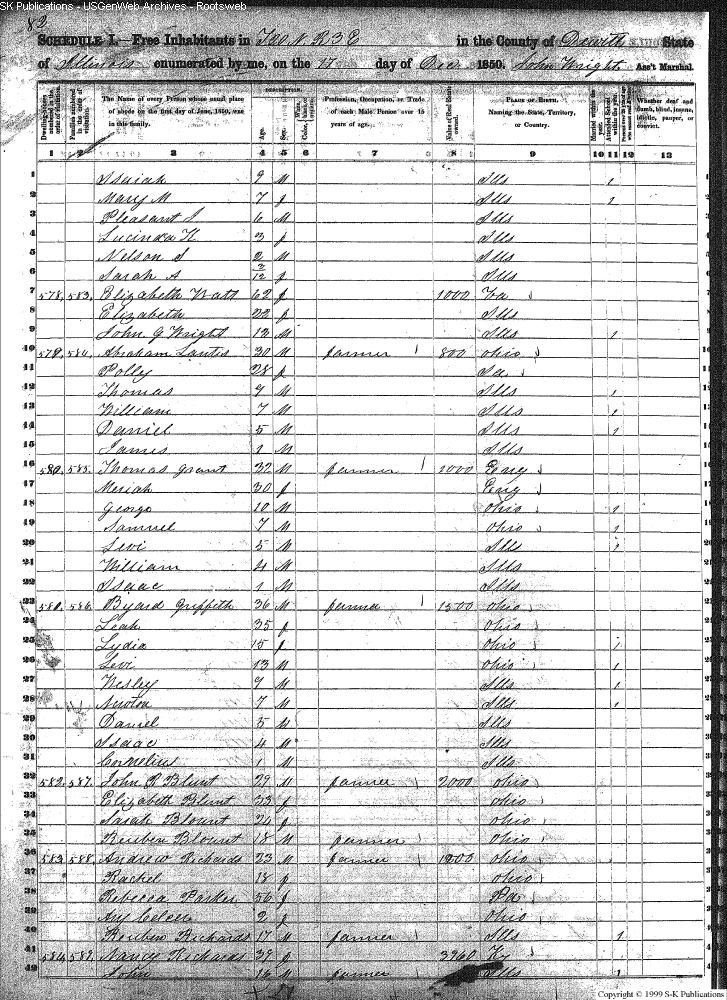 SK Publications - USGenWeb Archives - Rootsweb
82
SCHEDULE I.—Free Inhabitants in T20 N. R3E in the County of Dewitt State
of Illinois enumerated by me, on the 17 day of Dec 1850. John Wright Ass't Marshal.
DESCRIPTION.
The Name of every Person whose usual place of abode on the first day of June, 1850, was in this family.
Age. Sex.
Profession, Occupation, or Trade of each Male Person over 15 years of age.
Value of Real Estate owned.
PLACE OF BIRTH. Naming the State, Territory, or Country.
Married within the year.
Whether deaf and dumb, blind, insane, idiotic, pauper, or convict.
1 2 3 4 5 6 7 8 9 10 11 12 13
1 Isaiah 9 M Ills 1
2 Mary M 7 f Ills 1
3 Pleasant S 6 M Ills
4 Lucinda H 3 f Ills
5 Nelson S 2 M Ills
6 Sarah A 3/12 f Ills
7 578. 583. Elizabeth Watt 62 f 1000 Va
8 Elizabeth 22 f Ills
9 John G Wright 12 M Ills 1
10 579. 584. Abraham Lantis 30 M farmer 800 Ohio
11 Polly 28 f
12 Thomas 9 M Ills 1
13 William 7 M Ills 1
14 Daniel 5 M Ills 1
15 James 1 M Ills
16 580. 585. Thomas Grant 32 M farmer 1000 Eng
17 Meriah 30 f Eng
18 George 10 M Ohio 1
19 Samuel 7 M Ohio 1
20 Levi 5 M Ills 1
21 William 4 M Ills
22 Isaac 1 M Ills
23 581. 586. Byard Griffeth 36 M farmer 1500 Ohio
24 Leah 35 f Ohio
25 Lydia 15 f Ohio 1
26 Levi 13 M Ohio 1
27 Wesley 9 M Ills 1
28 Newton 7 M Ills 1
29 Daniel 5 M Ills
30 Isaac 4 M Ills
31 Cornelius 1 M Ills
32 582. 587. John R Blunt 29 M farmer 2000 Ohio
33 Elizabeth Blunt 23 f Ohio
34 Sarah Blount 24 f Ohio
35 Reuben Blount 18 M farmer Ohio
36 583. 588. Andrew Richards 23 M farmer 1200 Ohio
37 Rachel 18 f Ohio
38 Rebecca Parker 56 f Pa
39 2 f Ohio
40 Reuben Richards 17 M farmer Ills 1
41 584. 589. Nancy Richards 39 f 3960 Ky
42 John 16 M farmer Ills 1
Copyright © 1999 S-K Publications